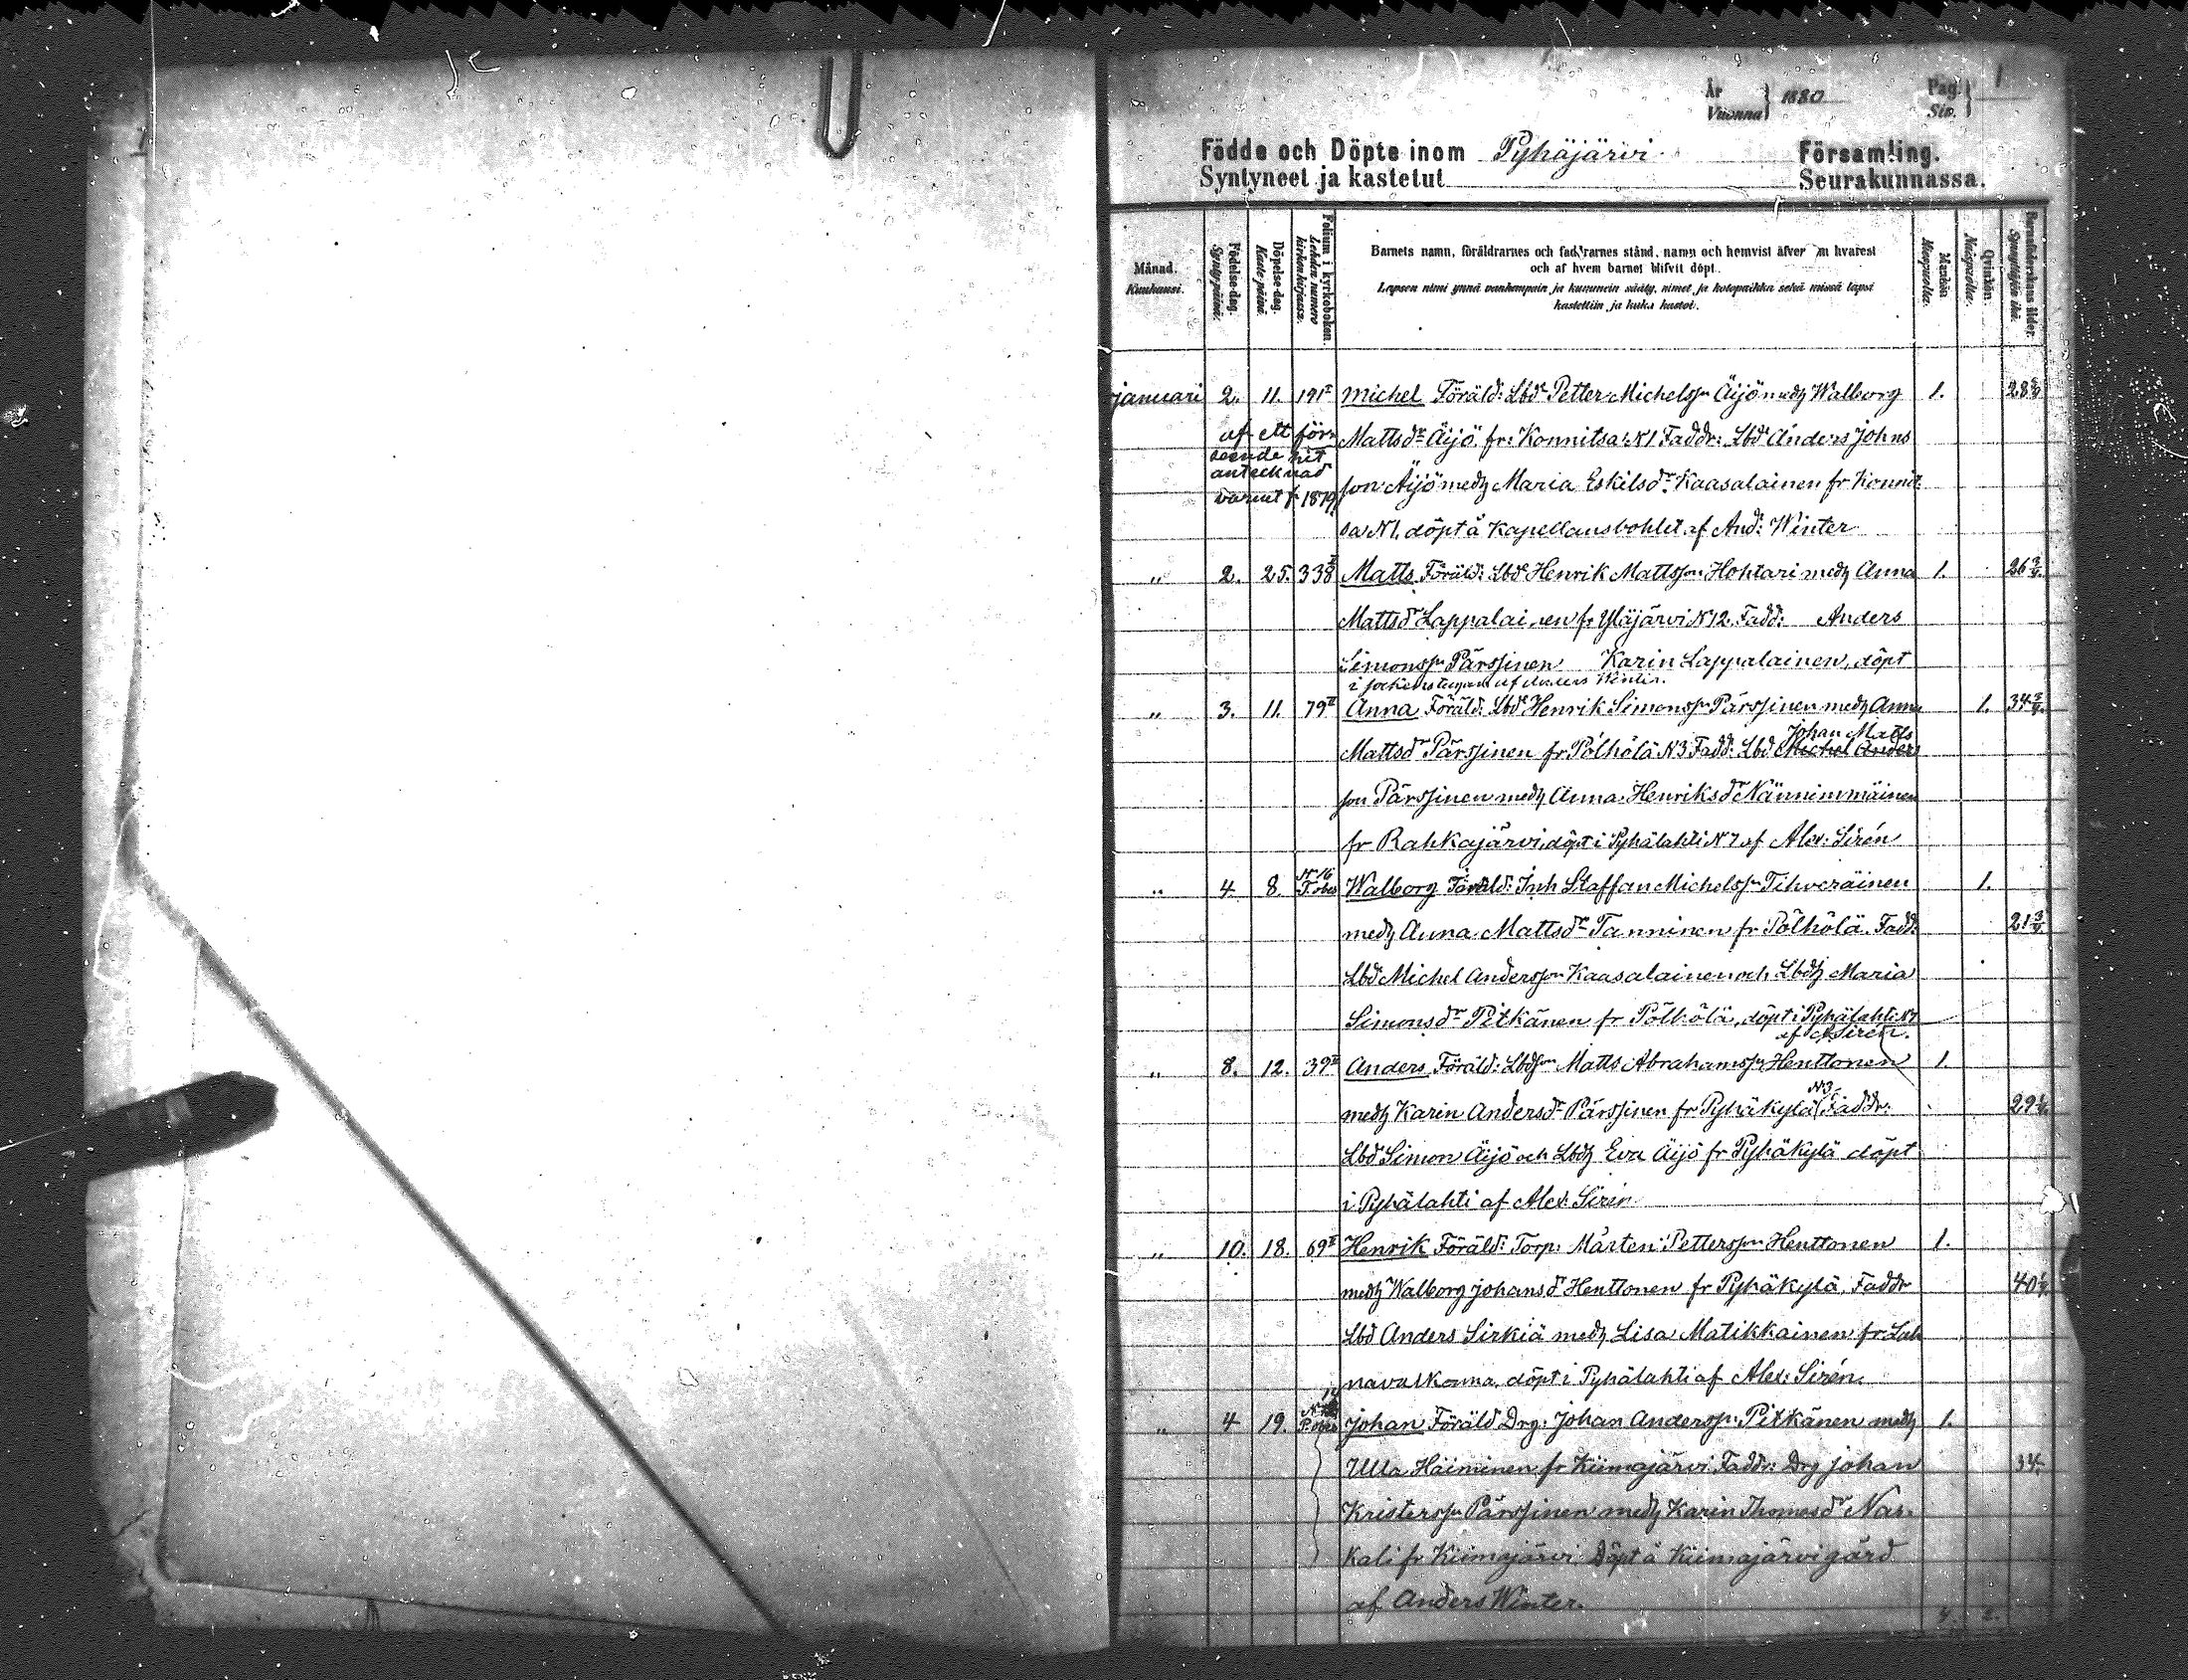 År
Vuonna
1880
Pag.
Siv.
1
Födde och Döpte inom Pyhäjärvi Församling.
Syntyneet ja kastetut Seurakunnassa.
Månad.
Kuukausi.
Födelse-dag.
Syntymäpäivä.
Döpelse-dag.
Kaste-päivä.
Folium i kyrkoboken.
Lehden numero kirkonkirjassa.
Barnets namn, föräldrarnes och faddrarnes stånd, namn och hemvist äfvensom hvarest
och af hvem barnet blifvit döpt.
Lapsen nimi ynnä vanhempain ja kummein sääty, nimet ja kotopaikka sekä missä lapsi
kastettiin ja kuka kastoi.
Mankön
Miespuolia.
Qvinkön.
Naispuolia.
Barnföderskans ålder.
Synnyttäjän ikä.
januari 2. 11. 191 I Michel Föräld: Lbd Petter Michelsson Äijö medh Walborg 1. 28
af ett för- Mattsdr Äijö fr: Konnitsa N1. Faddr: Lbd Anders Johns
seende hit
antecknad
varит f. 1879 son Äijö medh Maria Eskilsdr Kaasalainen fr Konnit
sa N1. döpt å Kapellansbohlet af And: Winter
" 2. 25. 338 Matts Föräld: Lbd Henrik Mattsson Hohtari medh Anna 1. 26 3/4.
Mattsdr Lappalainen fr Yläjärvi N12. Fadd: Anders
Simonsson Pärssinen Karin Lappalainen, döpt
i sockenstugan af Anders Winter.
" 3. 11. 79 II Anna Föräld: Lbd Henrik Simonsson Pärssinen medh Anna 1. 34
Johan Matts
Mattsdr Pärssinen fr Pölhölä N3 Fadd: Lbd Michel Anders
son Pärssinen medh Anna Henriksdr Nännimmäinen
fr Rahkajärvi, döpt i Pyhälahti N7 af Alex: Sirén
N 16
" 4. 8. T.bes Walborg Föräld: Inh Staffan Michelsson Tihveräinen 1.
medh Anna Mattsdr Tanninen fr Pölhölä. Fadd. 21 3/4
Lbd Michel Andersson Kaasalainen och Lbdh Maria
Simonsdr Pitkänen fr Pölhölä, döpt i Pyhälahti N7
af A Sirén.
" 8. 12. 39 II Anders Föräld: Lbdson Matts Abrahamsson Henttonen 1.
N3
medh Karin Andersdr Pärssinen fr Pyhäkylä Faddr: 29
Lbd Simon Äijö och Lbdh Eva Äijö fr Pyhäkylä döpt
i Pyhälahti af Alex: Sirén
" 10. 18. 69 II Henrik Föräld: Torp: Mårten Pettersson Henttonen 1.
medh Walborg Johansdr Henttonen fr Pyhäkylä. Faddr 40
Lbd Anders Sirkiä medh Lisa Matikkainen fr Lah
navalkama, döpt i Pyhälahti af Alex: Sirén.
" 4 19. Johan Föräld Drg: Johan Andersson Pitkänen medh 1.
Ulla Häiminen fr Kiimajärvi Faddr: Drg Johan 34.
Kristersson Pärssinen medh Karin Thomasdr Nar-
kali fr Kiimajärvi Döpt å Kiimajärvi gård
af Anders Winter.